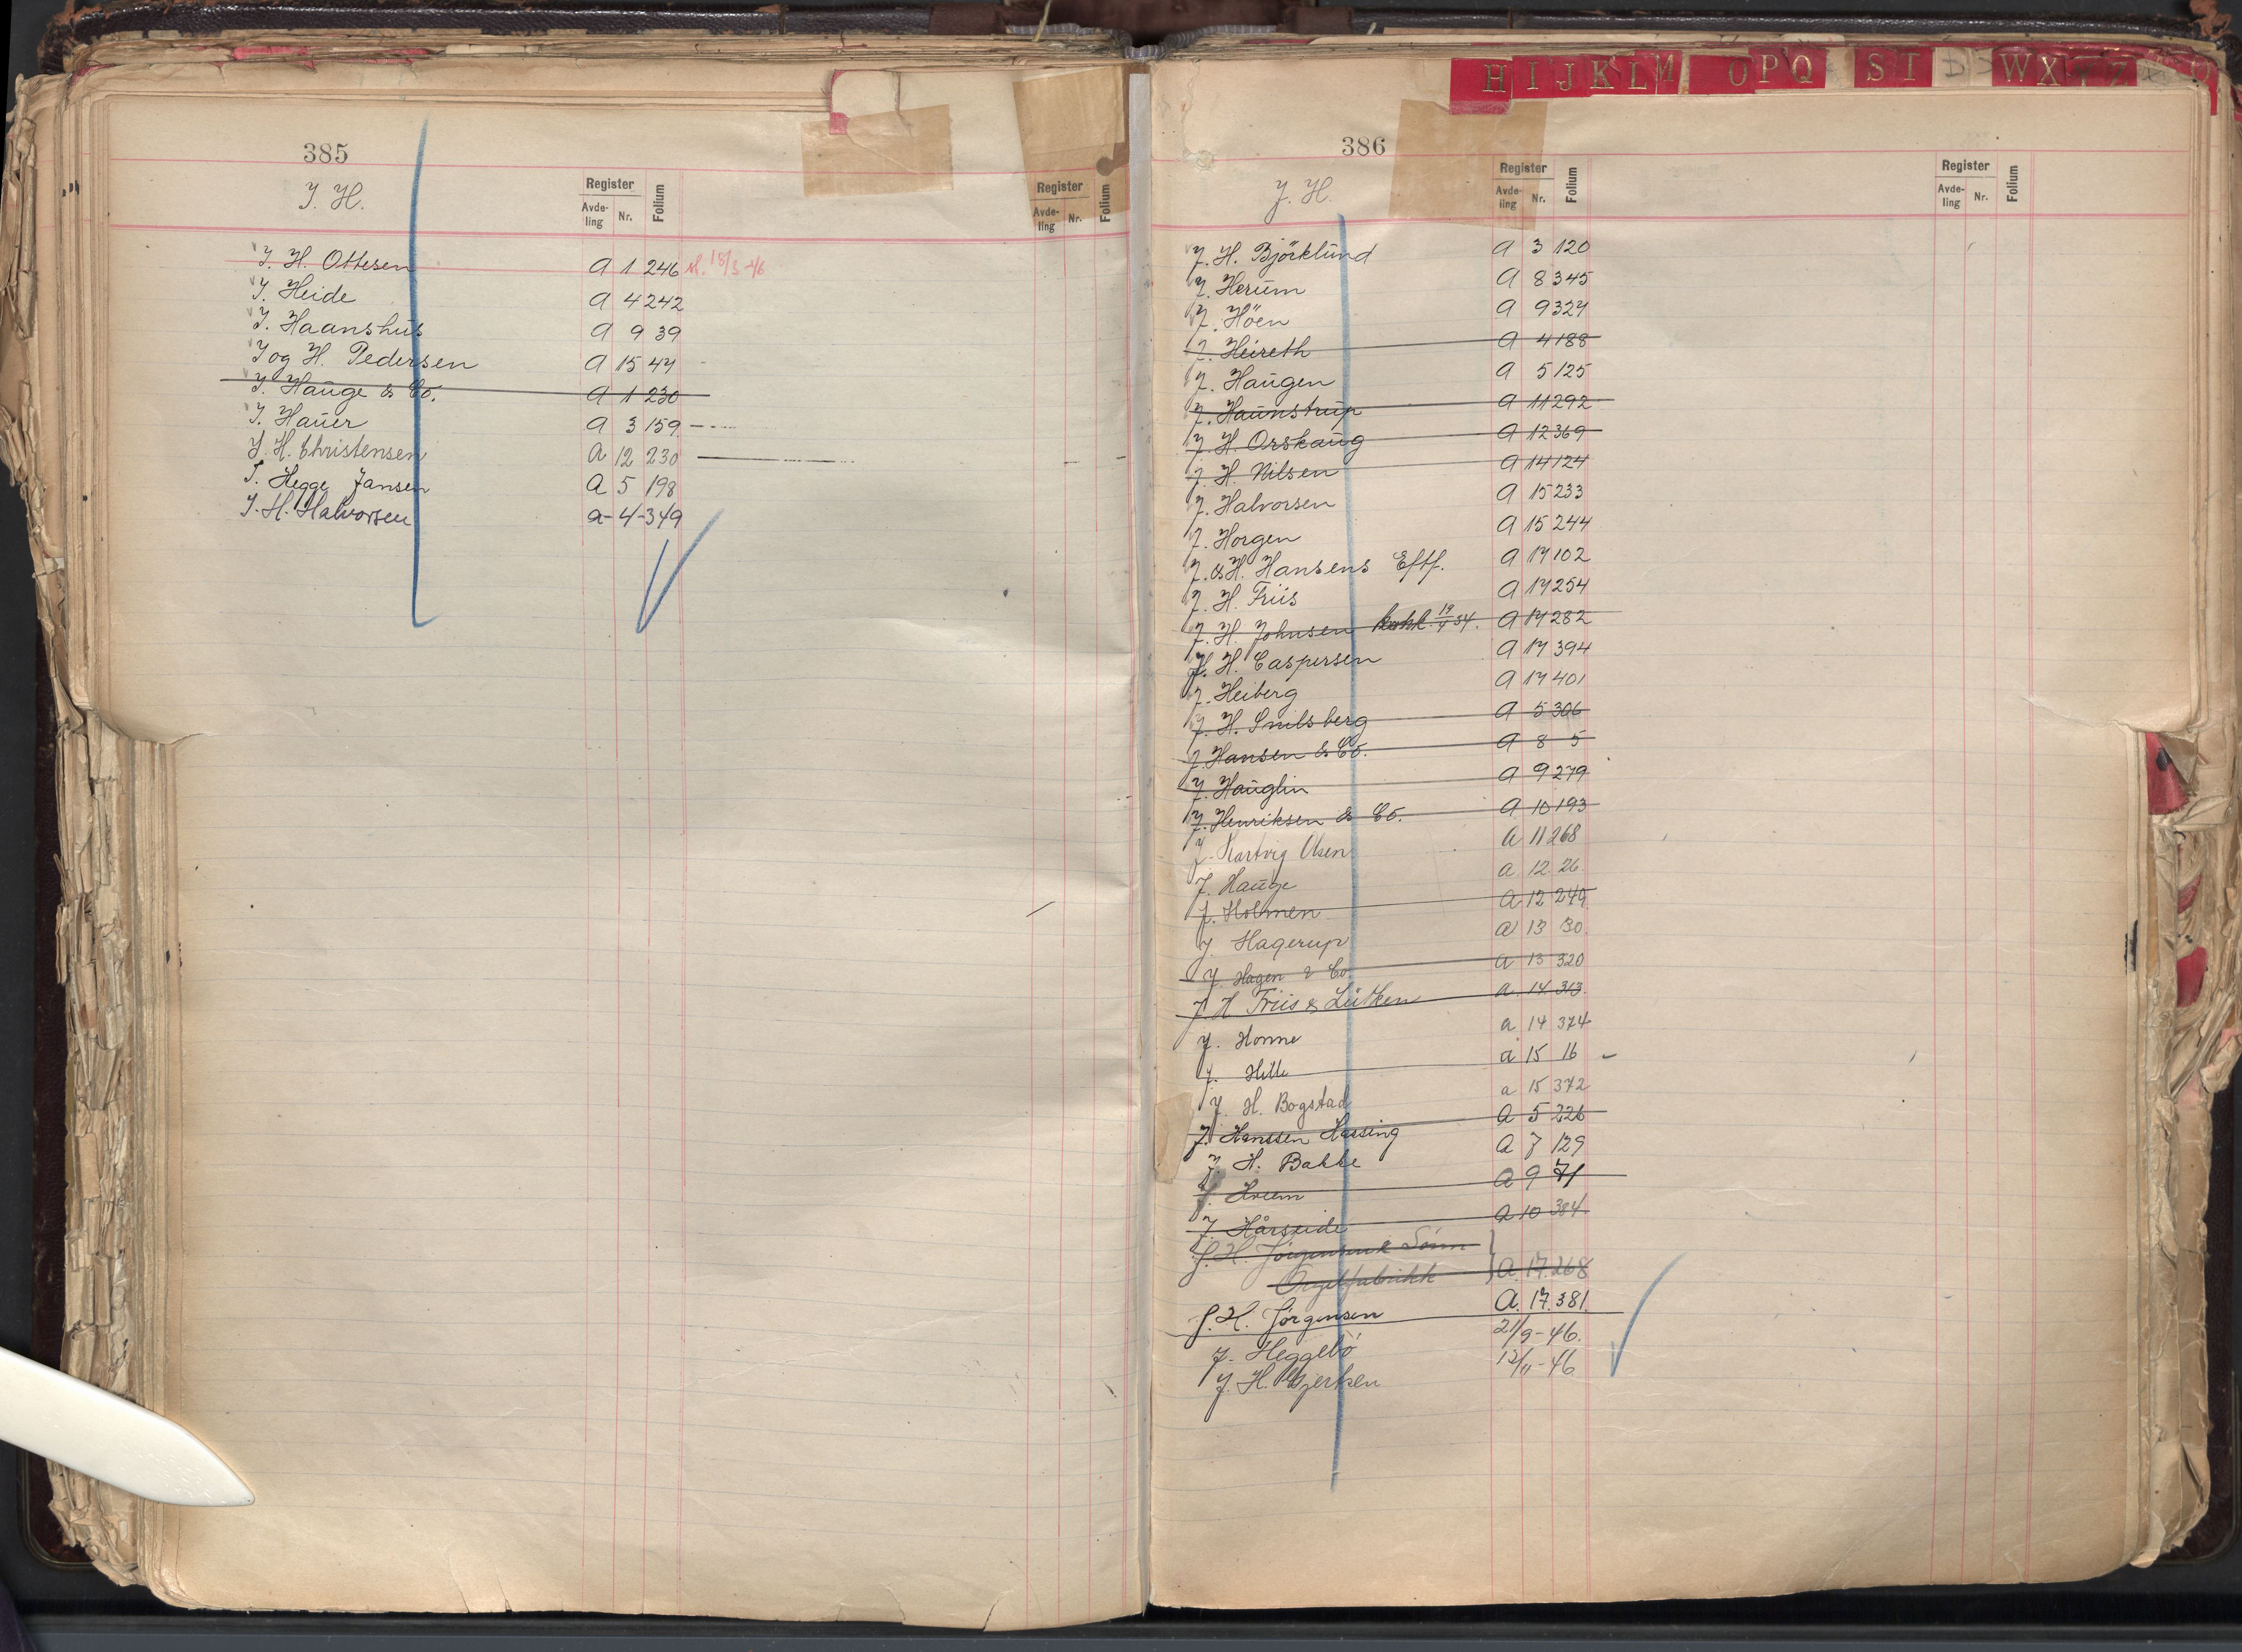 385
I. H.
Register
Avde-
ling
Nr.
Folium
Register
Avde-
ling
Nr.
Folium
I. H. Ottesen A 1 246 sl. 18/3-46
I. Heide A 4 242
I. Haanshus A 9 39
I og H. Pedersen A 15 44
I. Hauge & Co. A 1 230
I. Hauer A 3 159
I. H. Christensen A 12 230
I. Hegge Jansen A 5 198
I. H. Halvorsen a-4-349
H I J K L M O P Q S T W X Y Z
386
J. H.
Register
Avde-
ling
Nr.
Folium
Register
Avde-
ling
Nr.
Folium
J. H. Björklund A 3 120
J. Herum A 8 345
J. Höen A 9 324
J. Heireth A 4 188
J. Haugen A 5 125
J. Haunstrup A 11 292
J. H. Orskaug A 12 369
J. H. Nilsen A 14 124
J. Halvorsen A 15 233
J. Horgen A 15 244
J. & H. Hansens Eftf. A 17 102
J. H. Friis A 17 254
J. H. Johnsen A 17 282
J. H. Caspersen A 17 394
J. Heiberg A 17 401
J. H. Smilsberg A 5 306
J. Hansen & Co. A 8 5
J. Hauglin A 9 279
J. Henriksen & Co. A 10 193
J. Hartvig Olsen A 11 268
J. Hauge a 12 26
J. Holmen A 12 249
J. Hagerup a 13 30
J. Hagen & Co. a 13 320
J. H Friis & Lütken a. 14 313
J. Honne a 14 374
J. Hille a 15 16
J. H. Bogstad a 15 372
J. Hanssen Hassing A 5 226
J. H. Bakke A 7 129
J. Hveem A 9 71
J. Hårseide A 10 384
J. H. Jörgensen & Sönn
Orgelfabrikk A. 17. 268
J. H. Jörgensen A. 17. 381.
J. Heggebö 21/9-46.
J. H. Gjertsen 12/11-46